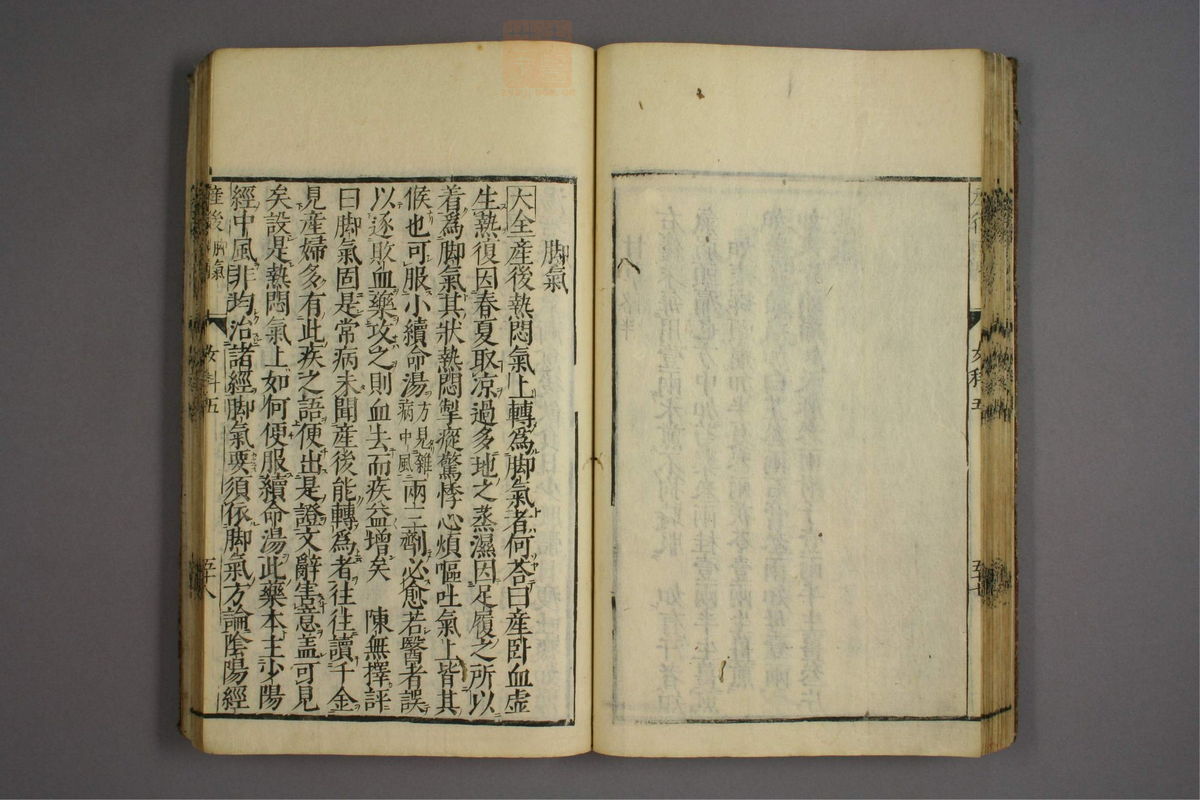 脚氣
大全産後熱悶氣上轉爲脚氣者何荅曰産卧血虚
生熱復因春夏取凉過多地之蒸濕因足履之所以
着爲脚氣其狀熱悶掣瘲驚悸心煩嘔吐氣上皆其
候也可服小續命湯方見雜病中風兩三劑必愈若醫者誤
以逐敗血藥攻之則血去而疾益增矣　陳無擇評
曰脚氣固是常病未聞産後能轉爲者往往讀千金
見産婦多有此疾之語便出是證文辭害意蓋可見
矣設是熱悶氣上如何便服續命湯此藥本主少陽
經中風非均治諸經脚氣要須依脚氣方論陰陽經
産後脚氣　女科五　五十八